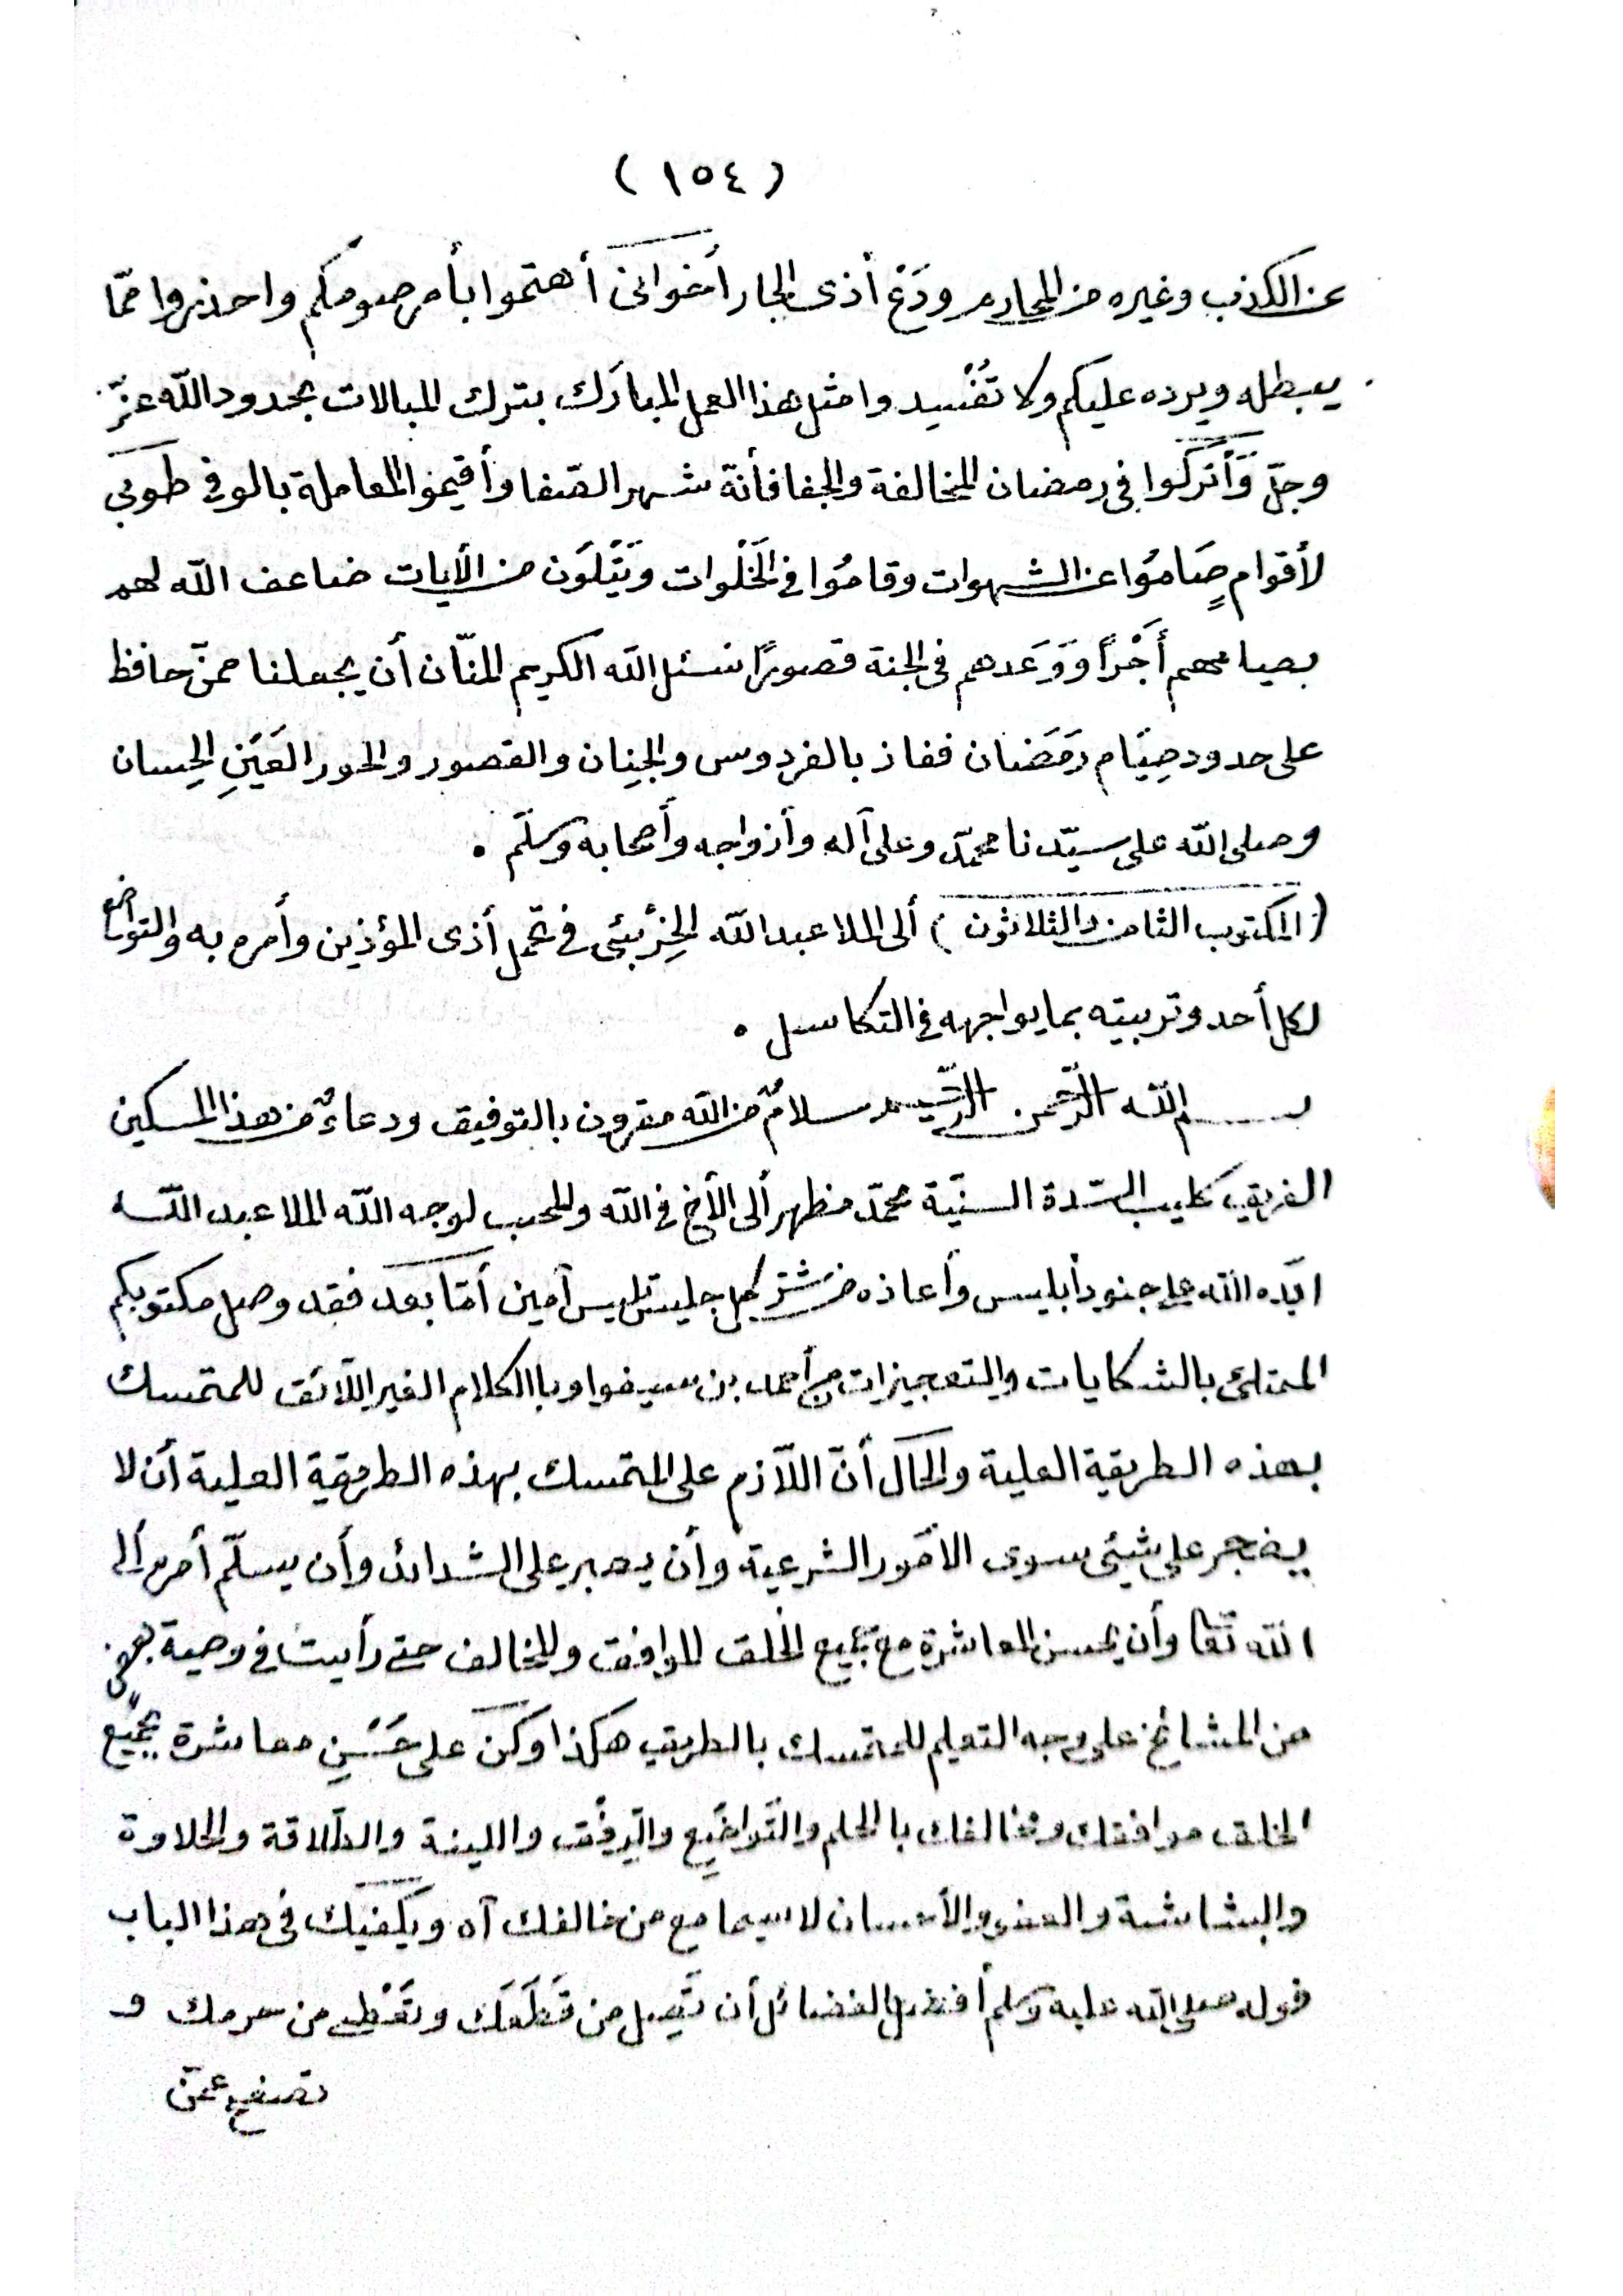 ( ١٥٤ )
عن الكذب وغيره من المحارم ودَعْ أذى الجار أخوانى أهتموا بأمر صومكم واحذروا ممّا
يبطله ويرده عليكم ولا تُفْسِد وامثل هذا العمل المبارَك بترك المبالات بحدود الله عزّ
وجلّ وَأتركوا فى رمضان المخالفة والجفا فأنّه شهر الصّفا وأقيموا المعاملة بالوفى طوبى
لأقوام صَامُوا عن الشهوات وقامُوا فى الخَلْوات ويَتْلَوْن من الأيات ضاعف الله لهم
بصيامهم أَجْراً وَوَعَدهم فى الجنة قصورًا نسئل الله الكريم المنّان أن يجعلنا ممنّ حافظ
على حدود صِيَام رَمَضان ففاز بالفردوس والجِنان والقصور والحور العَيْنِ الحِسان
وصلى الله على سيّدنا محمّد وعلى آله وأزواجه وأصحابه وسلّم .
( المكتوب الثامن والثلاثون ) ألى الملا عبدالله الخِزْبئى فى تحّمل أذى المؤذين وأمره به والتواضع
لكل أحد وتربيته بما يواجهه فى التكاسل .
بسم الله الرّحمن الرّحيم سلامٌ من الله مقرون بالتوفيق ودعاءٌ من هذا المسكين
الغريق كليب السّدة السنيّة محمّد مظهر ألى الأخ فى الله والمحب لوجه الله الملا عبد الله
ايّده الله على جنود أبليس وأعاذه من شرّ كل جليس تلبيس آمين أمّا بعد فقد وصل مكتوبكم
الممتلئ بالشكايات والتعجيزات من أحمد بن سيفوا وباالكلام الغير اللّائق للمتمسك
بهذه الطريقة العلية والحال أنّ اللّازم على المتمسك بهذه الطريقة العلية أن لا
يضجر على شيئى سوى الامور الشرعية وأن يصبر على الشدائد وأن يسلّم أمره ألى
الله تعا وأن يحسن المعاشرة مع جميع الخلق الموافق والمخالف حتى رأيت فى وصية بعض
من المشائخ على وجه التعليم للمتمسك بالطريق هكذا وكن على حَسَنِ معاشرة بجميع
الخلق موافقك ومخالفك باالحلم والتّواضع والرِفْق واللينة والطّلاقة والحلاوة
والبشاشة والعفو والأحسان لاسيما مع من خالفك آه ويكفيك فى هذا الباب
قوله صلى الله عليه وسلم أفضل الفضائل أن تَصِل من قَطَعَك وتعْطى من حرمك و
تصفح عمّن